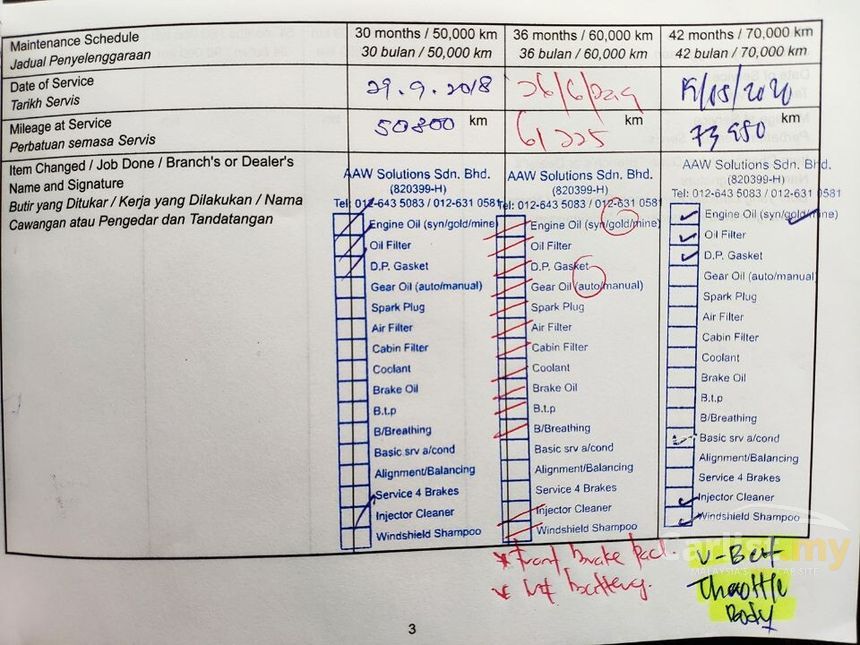 Maintenance Schedule
Jadual Penyelenggaraan
30 months / 50,000 km
30 bulan / 50,000 km
36 months / 60,000 km
36 bulan / 60,000 km
42 months / 70,000 km
42 bulan / 70,000 km
Date of Service
Tarikh Servis
29.9.2018
26/6/2019
15/05/2020
Mileage at Service
Perbatuan semasa Servis
50800 km
61225 km
73980 km
Item Changed / Job Done / Branch's or Dealer's
Name and Signature
Butir yang Ditukar / Kerja yang Dilakukan / Nama
Cawangan atau Pengedar dan Tandatangan
AAW Solutions Sdn. Bhd.
(820399-H)
Tel: 012-643 5083 / 012-631 0581
Engine Oil (syn/gold/mine)
Oil Filter
D.P. Gasket
Gear Oil (auto/manual)
Spark Plug
Air Filter
Cabin Filter
Coolant
Brake Oil
B.t.p
B/Breathing
Basic srv a/cond
Alignment/Balancing
Service 4 Brakes
Injector Cleaner
Windshield Shampoo
AAW Solutions Sdn. Bhd.
(820399-H)
Tel: 012-643 5083 / 012-631 0581
Engine Oil (syn/gold/mine)
Oil Filter
D.P. Gasket
Gear Oil (auto/manual)
Spark Plug
Air Filter
Cabin Filter
Coolant
Brake Oil
B.t.p
B/Breathing
Basic srv a/cond
Alignment/Balancing
Service 4 Brakes
Injector Cleaner
Windshield Shampoo
* Front brake pad.
* battery.
AAW Solutions Sdn. Bhd.
(820399-H)
Tel: 012-643 5083 / 012-631 0581
Engine Oil (syn/gold/mine)
Oil Filter
D.P. Gasket
Gear Oil (auto/manual)
Spark Plug
Air Filter
Cabin Filter
Coolant
Brake Oil
B.t.p
B/Breathing
Basic srv a/cond
Alignment/Balancing
Service 4 Brakes
Injector Cleaner
Windshield Shampoo
V-Belt
Throttle
Body
Carlist.my
3